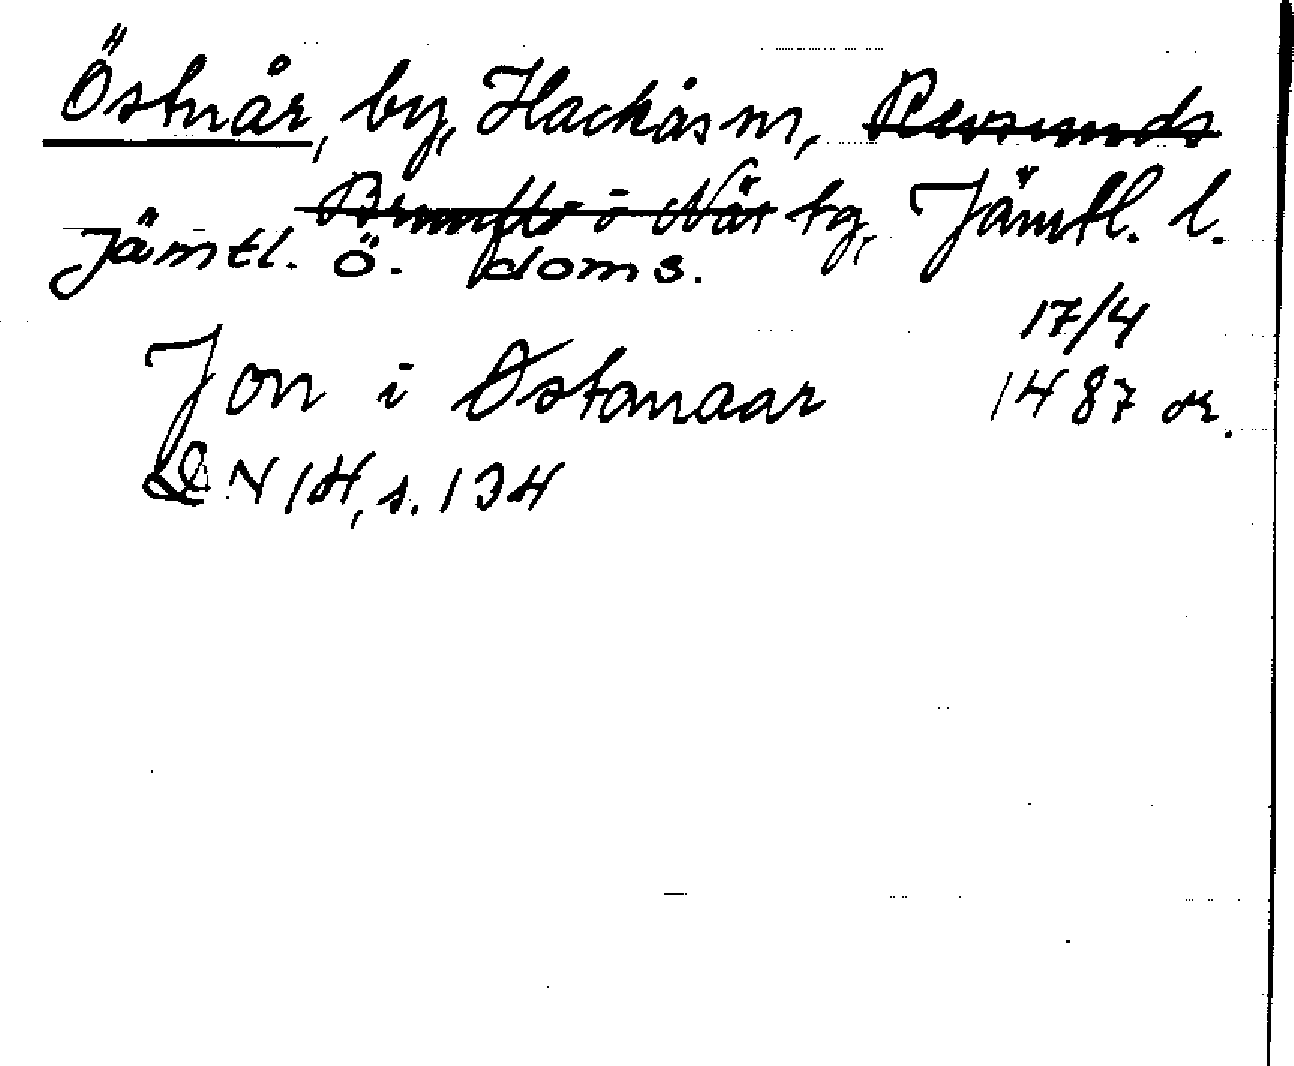 Östnår, by, Hackås sn, Revsunds
Brunflo o Näs tg, Jämtl. l.
Jämtl. Ö. doms.
17/4
Jon i Østanaar 1487 or.
DN 14, s. 134